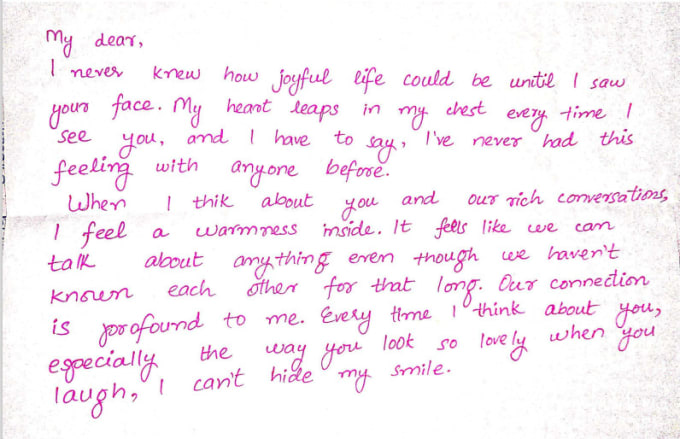 My dear,
I never knew how joyful life could be until I saw
your face. My heart leaps in my chest every time I
see you, and I have to say, I've never had this
feeling with anyone before.
When I thik about you and our rich conversations,
I feel a warmness inside. It feels like we can
talk about anything even though we haven't
known each other for that long. Our connection
is profound to me. Every time I think about you,
especially the way you look so lovely when you
laugh, I can't hide my smile.